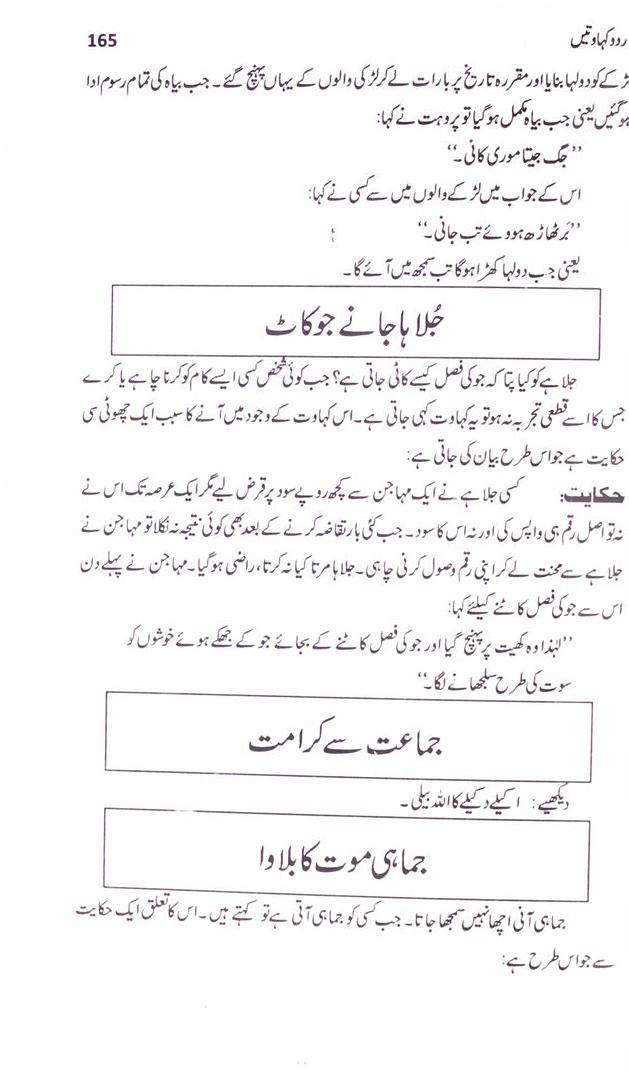 ردو کہاوتیں 165
ڑکے کو دولہا بنایا اور مقررہ تاریخ پر بارات لے کر لڑکی والوں کے یہاں پہنچ گئے۔ جب بیاہ کی تمام رسوم ادا
ہوگئیں یعنی جب بیاہ مکمل ہوگیا تو پروہت نے کہا:
”جگ جیتا موری کانی۔“
اس کے جواب میں لڑکے والوں میں سے کسی نے کہا:
”بَر ٹھاڑھ ہووئے تب جانی۔“
یعنی جب دولہا کھڑا ہوگا تب سمجھ میں آئے گا۔
جُلاہا جانے جو کاٹ
جلاہے کو کیا پتا کہ جو کی فصل کیسے کاٹی جاتی ہے؟ جب کوئی شخص کسی ایسے کام کو کرنا چاہے یا کرے
جس کا اسے قطعی تجربہ نہ ہو تو یہ کہاوت کہی جاتی ہے۔ اس کہاوت کے وجود میں آنے کا سبب ایک چھوٹی سی
حکایت ہے جو اس طرح بیان کی جاتی ہے:
حکایت: کسی جلاہے نے ایک مہاجن سے کچھ روپے سود پر قرض لیے مگر ایک عرصہ تک اس نے
نہ تو اصل رقم ہی واپس کی اور نہ اس کا سود۔ جب کئی بار تقاضہ کرنے کے بعد بھی کوئی نتیجہ نہ نکلا تو مہاجن نے
جلاہے سے محنت لے کر اپنی رقم وصول کرنی چاہی۔ جلاہا مرتا کیا نہ کرتا، راضی ہوگیا۔ مہاجن نے پہلے دن
اس سے جو کی فصل کاٹنے کیلئے کہا:
”لہٰذا وہ کھیت پر پہنچ گیا اور جو کی فصل کاٹنے کے بجائے جو کے جھکے ہوئے خوشوں کو
سوت کی طرح سلجھانے لگا۔“
جماعت سے کرامت
دیکھیے: اکیلے دکیلے کا اللہ بیلی۔
جماہی موت کا بلاوا
جماہی آنی اچھا نہیں سمجھا جاتا۔ جب کسی کو جماہی آتی ہے تو کہتے ہیں۔ اس کا تعلق ایک حکایت
سے جو اس طرح ہے: